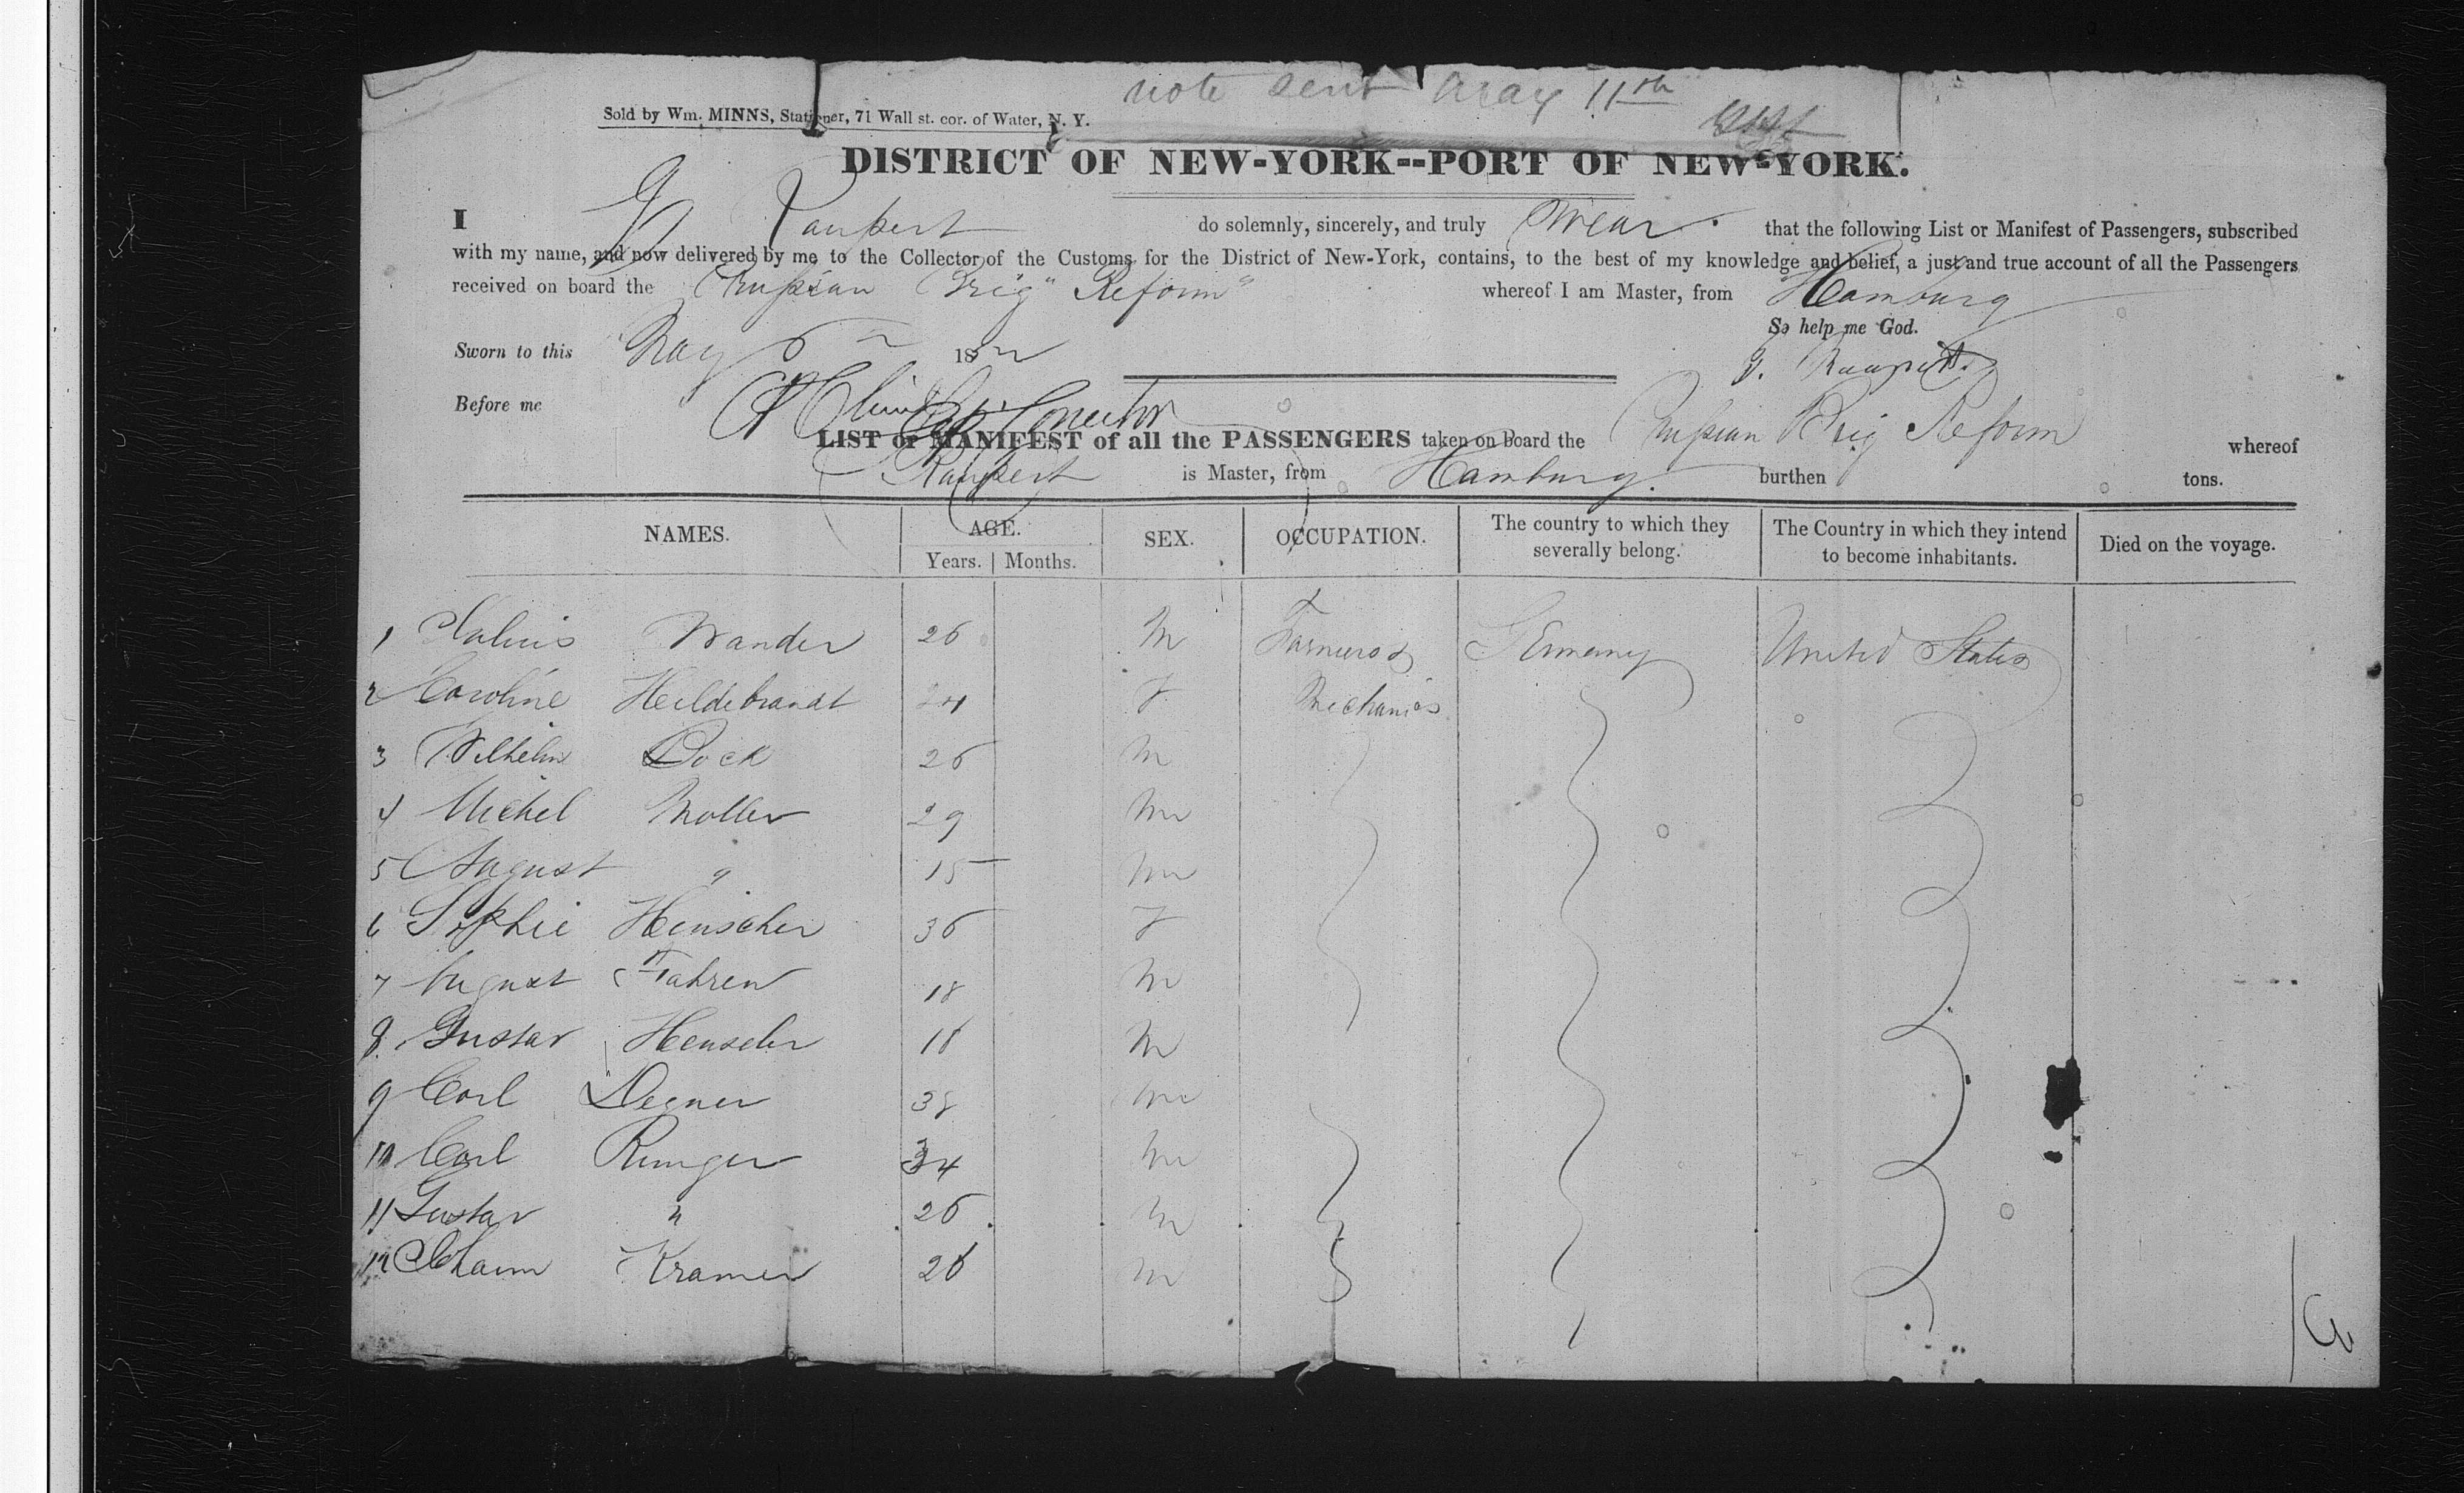 note sent May 11th
Sold by Wm. MINNS, Stationer, 71 Wall st. cor. of Water, N. Y.
DISTRICT OF NEW-YORK--PORT OF NEW-YORK.
I Raupert do solemnly, sincerely, and truly Swear that the following List or Manifest of Passengers, subscribed
with my name, and now delivered by me to the Collector of the Customs for the District of New-York, contains, to the best of my knowledge and belief, a just and true account of all the Passengers
received on board the Prussian Brig "Reform" whereof I am Master, from Hamburg
So help me God.
Sworn to this May 6 1852
J. Raupert
Before me Collector
LIST or MANIFEST of all the PASSENGERS taken on board the Prussian Brig Reform whereof
Raupert is Master, from Hamburg. burthen tons.
NAMES. AGE. Years. Months. SEX. OCCUPATION. The country to which they severally belong. The Country in which they intend to become inhabitants. Died on the voyage.
1 Julius Wander 26 M Farmers & Germany United States
2 Caroline Heildebrandt 24 F Mechanics
3 Wilhelm Bock 26 M
4 Michel Moller 29 M
5 August " 15 M
6 Sophie Henscher 36 F
7 August Fahren 18 M
8 Gustav Henscher 18 M
9 Carl Degner 38 M
10 Carl Runger 34 M
11 Gustav " 26 M
12 Johann Kramer 26 M